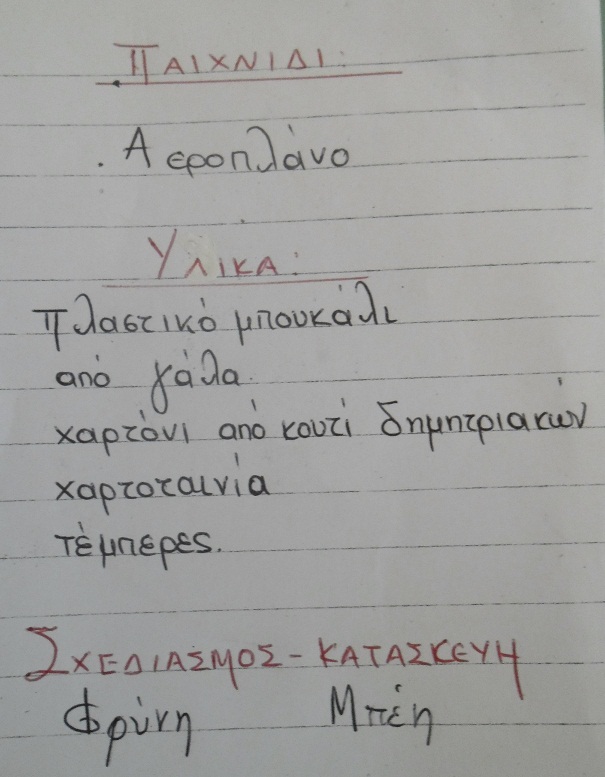 ΠΑΙΧΝΙΔΙ:
. Αεροπλάνο
ΥΛΙΚΑ:
Πλαστικό μπουκάλι
από γάλα.
χαρτόνι από κουτί δημητριακών
χαρτοταινία
τέμπερες.
ΣΧΕΔΙΑΣΜΟΣ - ΚΑΤΑΣΚΕΥΗ
Φρύνη Μπέη